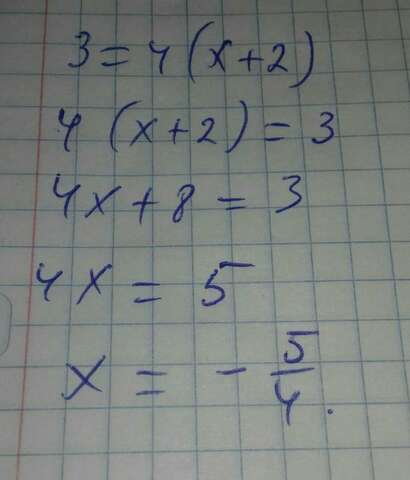 3 = 4(x+2)
4(x+2) = 3
4x + 8 = 3
4x = 5
x = - 5/4.